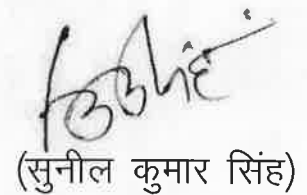 (सुनील कुमार सिंह)